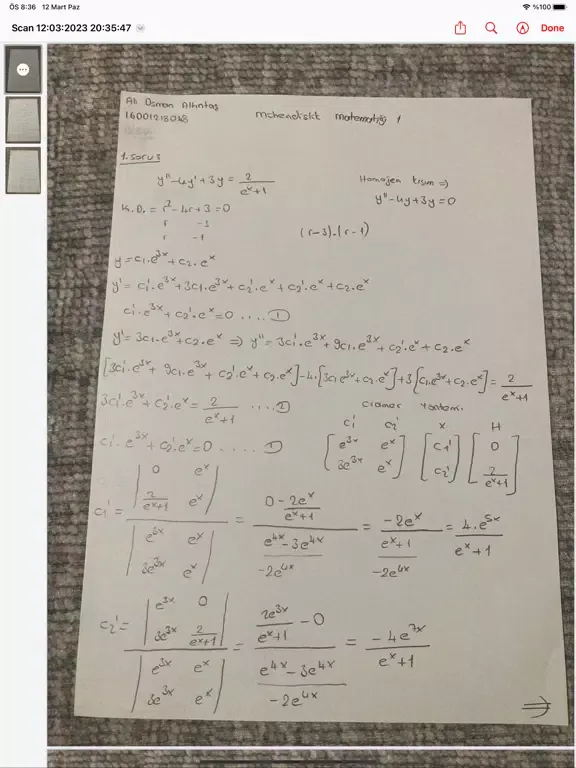 ÖS 8:36 12 Mart Paz
%100
Scan 12:03:2023 20:35:47
Done
Ali Osman Altıntaş
Mühendislik Matematiği 1
1. soru:
y''-4y'+3y = 2/(e^x+1)
Homojen kısım =>
y''-4y+3y=0
K.D. = r²-4r+3=0
r -3
r -1
(r-3).(r-1)
y=c₁.e^3x+c₂.e^x
y'= c₁'.e^3x+3c₁.e^3x+c₂'.e^x+c₂.e^x
c₁'.e^3x+c₂'.e^x=0 .... ①
y'=3c₁.e^3x+c₂.e^x => y''=3c₁'.e^3x+9c₁.e^3x+c₂'.e^x+c₂.e^x
[3c₁'.e^3x+9c₁.e^3x+c₂'.e^x+c₂.e^x]-4.[3c₁.e^3x+c₂.e^x]+3[c₁.e^3x+c₂.e^x]=2/(e^x+1)
3c₁'.e^3x+c₂'.e^x=2/(e^x+1) .... ②
cramer yöntemi
c₁'.e^3x+c₂'.e^x=0 .... ①
c₁' c₂' X H
[e^3x e^x] [c₁'] [0]
[3e^3x e^x] [c₂'] [2/(e^x+1)]
c₁' = |0 e^x; 2/(e^x+1) e^x| / |e^3x e^x; 3e^3x e^x| = (0-2e^x/(e^x+1)) / (e^4x-3e^4x) = (-2e^x/(e^x+1)) / (-2e^4x) = 4.e^5x/(e^x+1)
-2e^4x
c₂' = |e^3x 0; 3e^3x 2/(e^x+1)| / |e^3x e^x; 3e^3x e^x| = (2e^3x/(e^x+1) - 0) / (e^4x-3e^4x) = -4e^7x/(e^x+1)
-2e^4x
=>